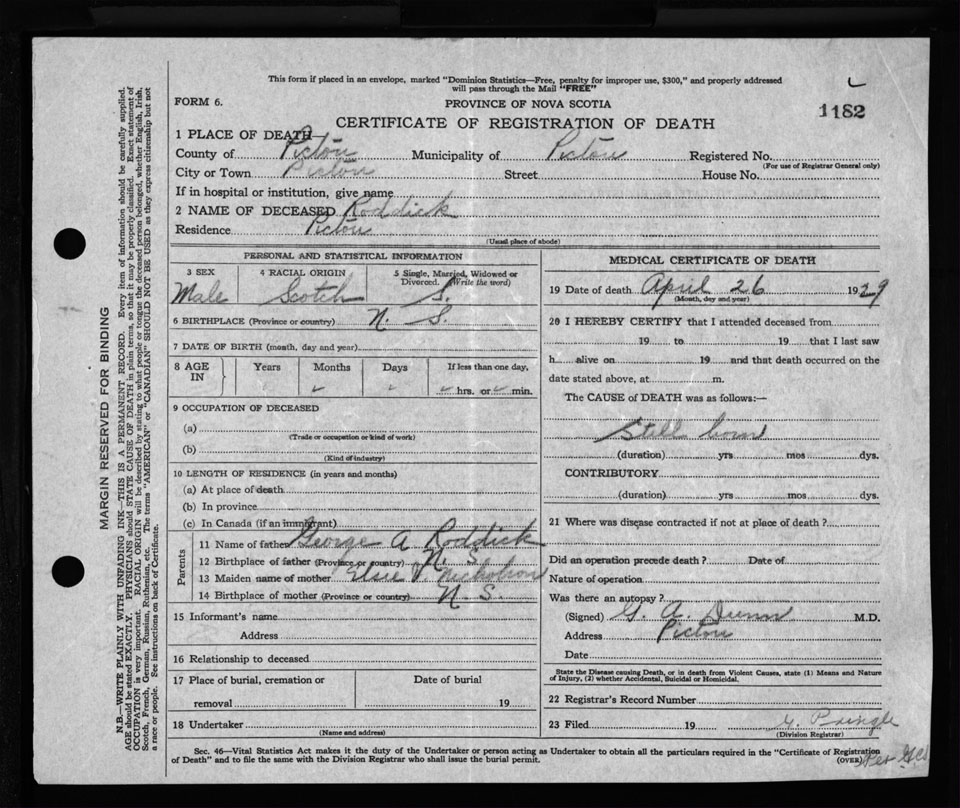 This form if placed in an envelope, marked "Dominion Statistics—Free, penalty for improper use, $300," and properly addressed
will pass through the Mail "FREE"
FORM 6.
PROVINCE OF NOVA SCOTIA
1182
CERTIFICATE OF REGISTRATION OF DEATH
1 PLACE OF DEATH
County of Pictou Municipality of Pictou Registered No.
(For use of Registrar General only)
City or Town Pictou Street House No.
If in hospital or institution, give name
2 NAME OF DECEASED Roddick
Residence Pictou
(Usual place of abode)
PERSONAL AND STATISTICAL INFORMATION
3 SEX 4 RACIAL ORIGIN 5 Single, Married, Widowed or
Divorced. (Write the word)
Male Scotch S.
6 BIRTHPLACE (Province or country) N. S.
7 DATE OF BIRTH (month, day and year)
8 AGE IN Years Months Days If less than one day,
hrs. or min.
9 OCCUPATION OF DECEASED
(a)
(Trade or occupation or kind of work)
(b)
(Kind of industry)
10 LENGTH OF RESIDENCE (in years and months)
(a) At place of death
(b) In province
(c) In Canada (if an immigrant)
Parents
11 Name of father George A Roddick
12 Birthplace of father (Province or country) N. S.
13 Maiden name of mother Elsie
14 Birthplace of mother (Province or country) N. S.
15 Informant's name
Address
16 Relationship to deceased
17 Place of burial, cremation or Date of burial
removal 19
18 Undertaker
(Name and address)
MEDICAL CERTIFICATE OF DEATH
19 Date of death April 26 1929
(Month, day and year)
20 I HEREBY CERTIFY that I attended deceased from
19 to 19 that I last saw
h alive on 19 and that death occurred on the
date stated above, at m.
The CAUSE of DEATH was as follows:—
Still born
(duration) yrs mos dys.
CONTRIBUTORY
(duration) yrs mos dys.
21 Where was disease contracted if not at place of death?
Did an operation precede death? Date of
Nature of operation
Was there an autopsy?
(Signed) G. A. Dunn M.D.
Address Pictou
Date
State the Disease causing Death, or in death from Violent Causes, state (1) Means and Nature
of Injury, (2) whether Accidental, Suicidal or Homicidal.
22 Registrar's Record Number
23 Filed 19 G. Pringle
(Division Registrar)
Sec. 46—Vital Statistics Act makes it the duty of the Undertaker or person acting as Undertaker to obtain all the particulars required in the "Certificate of Registration
of Death" and to file the same with the Division Registrar who shall issue the burial permit.
(OVER) Per
MARGIN RESERVED FOR BINDING
N.B.—WRITE PLAINLY WITH UNFADING INK—THIS IS A PERMANENT RECORD. Every item of information should be carefully supplied.
AGE should be stated EXACTLY. PHYSICIANS should STATE CAUSE OF DEATH in plain terms, so that it may be properly classified. Exact statement of
OCCUPATION is very important. RACIAL ORIGIN will be described by stating to what people or tongue the deceased person belonged, whether English, Irish,
Scotch, French, German, Russian, Ruthenian, etc. The terms "AMERICAN" or "CANADIAN" SHOULD NOT BE USED as they express citizenship but not
a race or people. See instructions on back of Certificate.